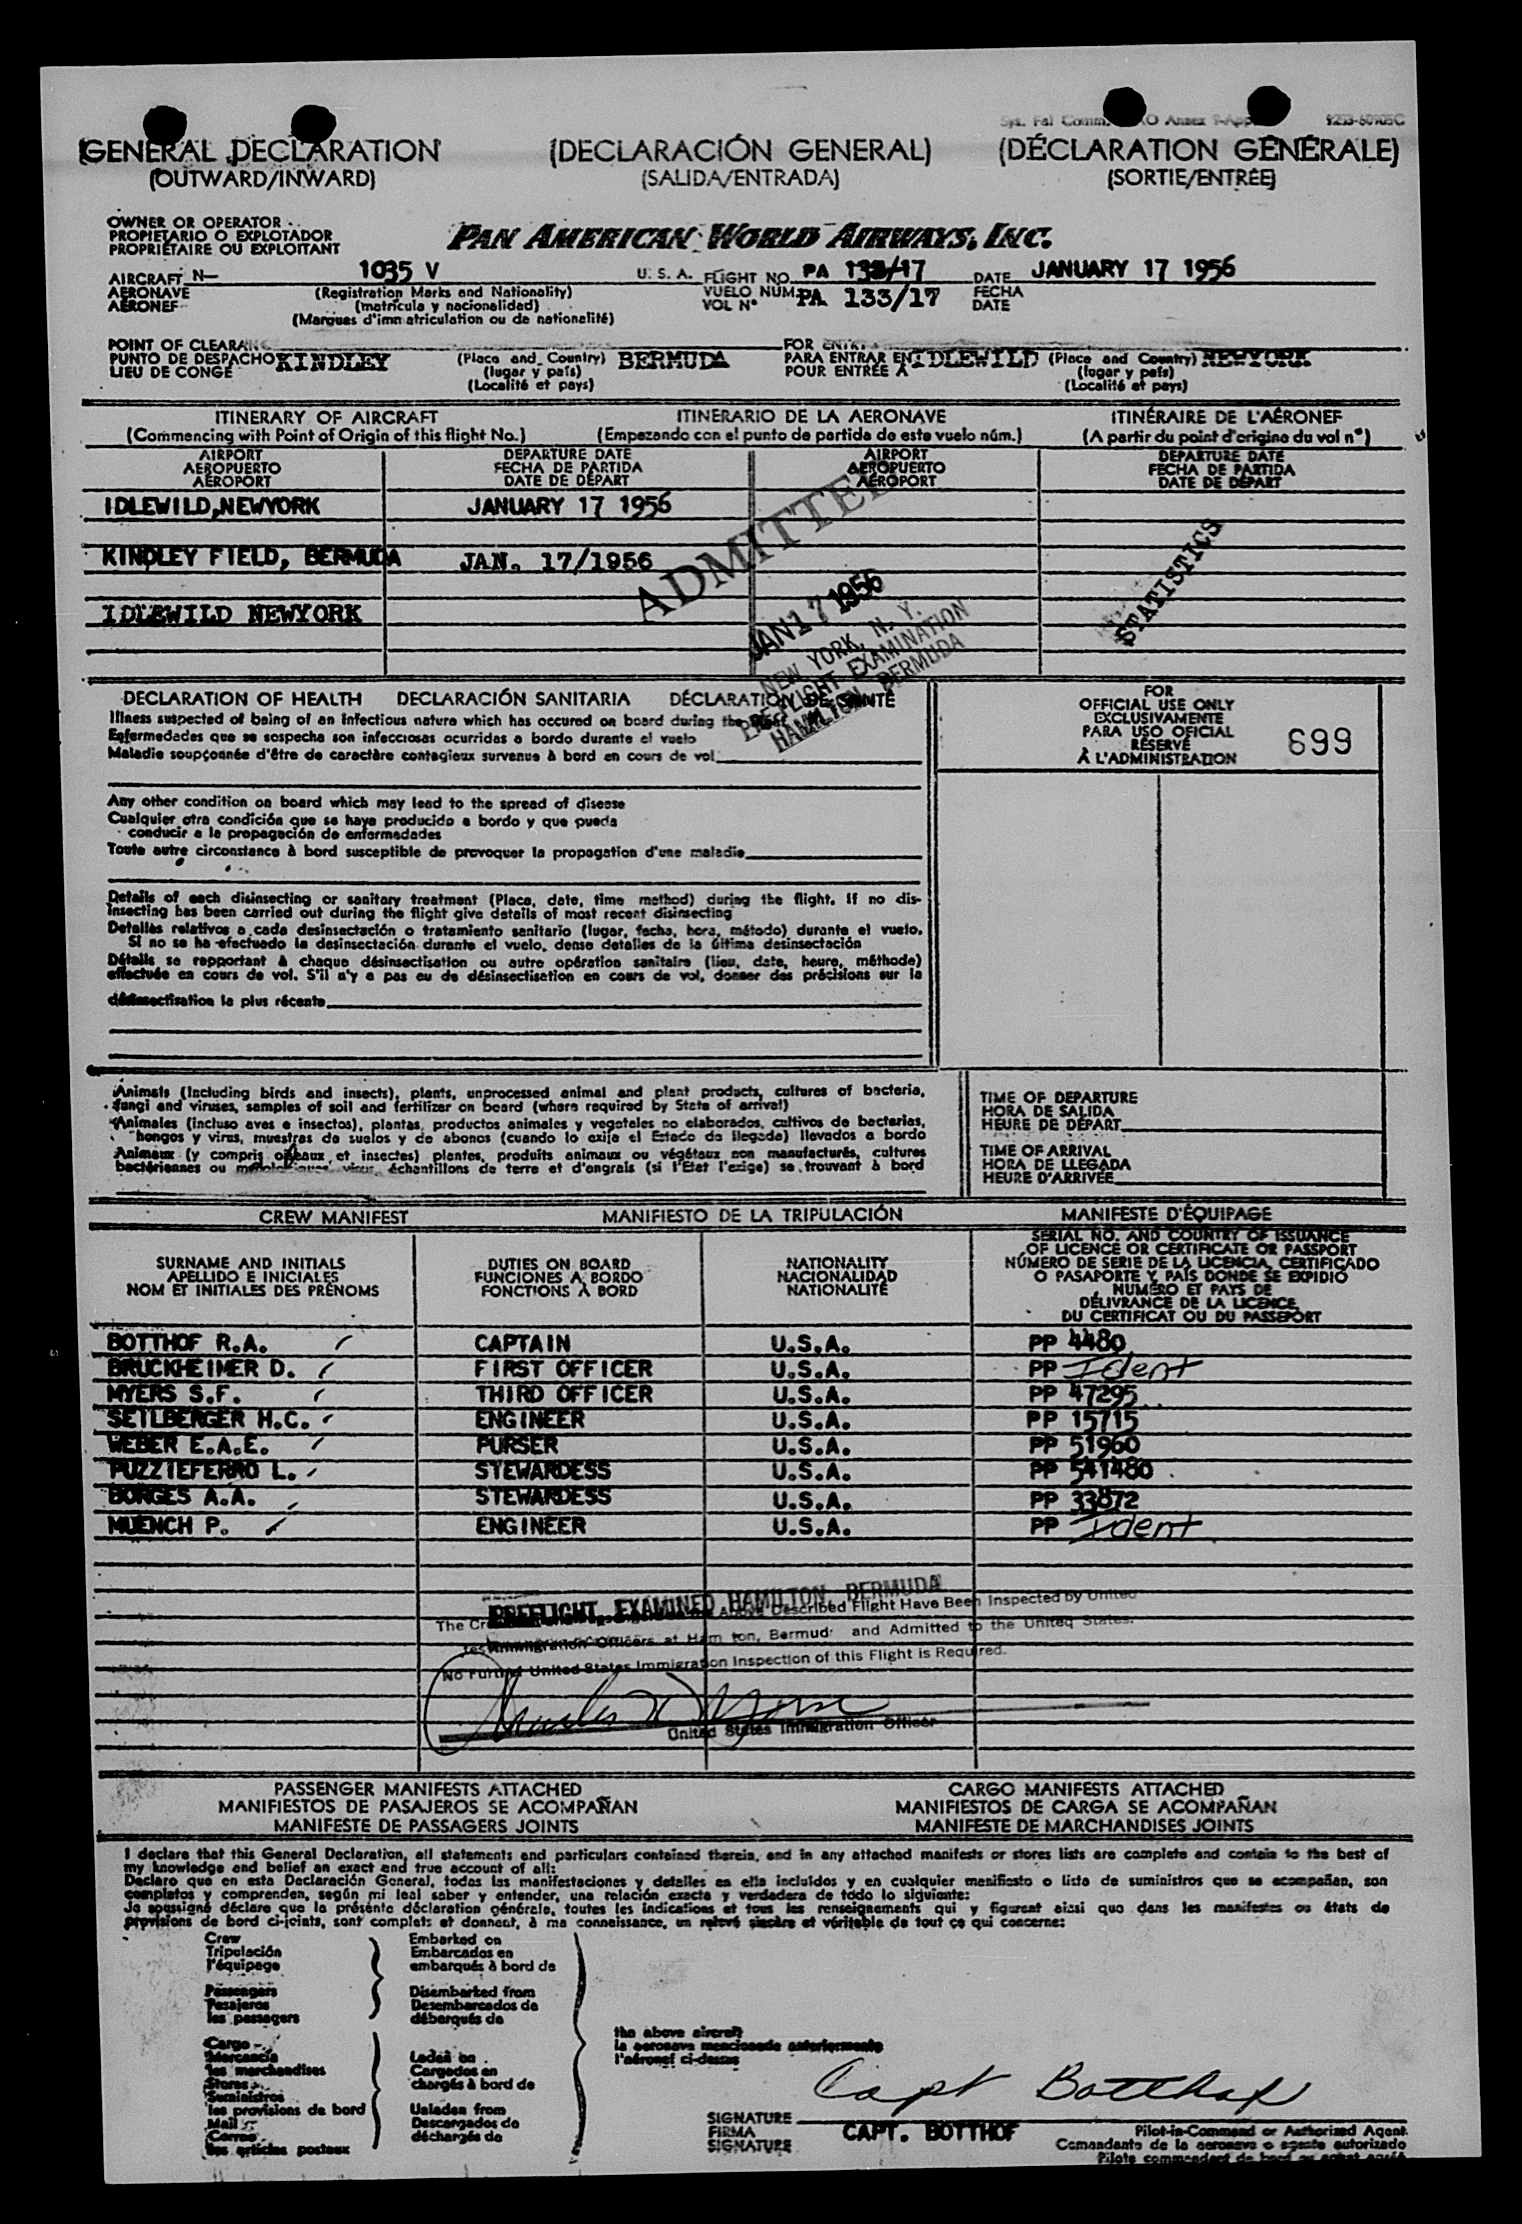 Sys. Fal Comm. O Annex 9-App 9253-50905C
(GENERAL DECLARATION (DECLARACIÓN GENERAL) (DÉCLARATION GÉNÉRALE)
(OUTWARD/INWARD) (SALIDA/ENTRADA) (SORTIE/ENTRÉE)
OWNER OR OPERATOR
PROPIETARIO O EXPLOTADOR
PROPRIÉTAIRE OU EXPLOITANT
PAN AMERICAN WORLD AIRWAYS, INC.
AIRCRAFT N— 1035 V U. S. A. FLIGHT NO. PA 133/17 DATE JANUARY 17 1956
AERONAVE (Registration Marks and Nationality) VUELO NUM. PA 133/17 FECHA
AÉRONEF (matrícula y nacionalidad) VOL N° DATE
(Marques d'immatriculation ou de nationalité)
POINT OF CLEARANC FOR ENTRY
PUNTO DE DESPACHO KINDLEY (Place and Country) BERMUDA PARA ENTRAR EN IDLEWILD (Place and Country) NEWYORK
LIEU DE CONGÉ (lugar y país) POUR ENTRÉE À (lugar y país)
(Localité et pays) (Localité et pays)
ITINERARY OF AIRCRAFT ITINERARIO DE LA AERONAVE ITINÉRAIRE DE L'AÉRONEF
(Commencing with Point of Origin of this flight No.) (Empezando con el punto de partida de este vuelo núm.) (A partir du point d'origine du vol n°)
AIRPORT DEPARTURE DATE AIRPORT DEPARTURE DATE
AEROPUERTO FECHA DE PARTIDA AEROPUERTO FECHA DE PARTIDA
AÉROPORT DATE DE DÉPART AÉROPORT DATE DE DÉPART
IDLEWILD,NEWYORK JANUARY 17 1956
KINDLEY FIELD, BERMUDA JAN. 17/1956
IDLEWILD NEWYORK
ADMITTED
JAN 17 1956
NEW YORK, N. Y.
PRE-FLIGHT EXAMINATION
HAMILTON BERMUDA
STATISTICS
DECLARATION OF HEALTH DECLARACIÓN SANITARIA DÉCLARATION DE SANTÉ
Illness suspected of being of an infectious nature which has occured on board during the flight
Enfermedades que se sospecha son infecciosas ocurridas a bordo durante el vuelo
Maladie soupçonnée d'être de caractère contagieux survenue à bord en cours de vol
FOR
OFFICIAL USE ONLY
EXCLUSIVAMENTE
PARA USO OFICIAL
RÉSERVÉ
À L'ADMINISTRATION
699
Any other condition on board which may lead to the spread of disease
Cualquier otra condición que se haya producido a bordo y que pueda
conducir a la propagación de enfermedades
Toute autre circonstance à bord susceptible de provoquer la propagation d'une maladie
Details of each disinsecting or sanitary treatment (Place, date, time method) during the flight. If no dis-
insecting has been carried out during the flight give details of most recent disinsecting
Detalles relativos a cada desinsectación o tratamiento sanitario (lugar, fecha, hora, método) durante el vuelo.
Si no se ha efectuado la desinsectación durante el vuelo, dense detalles de la última desinsectación
Détails se rapportant à chaque désinsectisation ou autre opération sanitaire (lieu, date, heure, méthode)
effectuée en cours de vol. S'il n'y a pas eu de désinsectisation en cours de vol, donner des précisions sur la
désinsectisation la plus récente
Animals (including birds and insects), plants, unprocessed animal and plant products, cultures of bacteria,
fungi and viruses, samples of soil and fertilizer on board (where required by State of arrival)
Animales (incluso aves e insectos), plantas, productos animales y vegetales no elaborados, cultivos de bacterias,
hongos y virus, muestras de suelos y de abonos (cuando lo exija el Estado de llegada) llevados a bordo
Animaux (y compris oiseaux et insectes) plantes, produits animaux ou végétaux non manufacturés, cultures
bactériennes ou virus, échantillons de terre et d'engrais (si l'État l'exige) se trouvant à bord
TIME OF DEPARTURE
HORA DE SALIDA
HEURE DE DÉPART
TIME OF ARRIVAL
HORA DE LLEGADA
HEURE D'ARRIVÉE
CREW MANIFEST MANIFIESTO DE LA TRIPULACIÓN MANIFESTE D'ÉQUIPAGE
SURNAME AND INITIALS
APELLIDO E INICIALES
NOM ET INITIALES DES PRÉNOMS
DUTIES ON BOARD
FUNCIONES A BORDO
FONCTIONS À BORD
NATIONALITY
NACIONALIDAD
NATIONALITÉ
SERIAL NO. AND COUNTRY OF ISSUANCE
OF LICENCE OR CERTIFICATE OR PASSPORT
NÚMERO DE SERIE DE LA LICENCIA, CERTIFICADO
O PASAPORTE Y PAÍS DONDE SE EXPIDIÓ
NUMÉRO ET PAYS DE
DÉLIVRANCE DE LA LICENCE,
DU CERTIFICAT OU DU PASSEPORT
BOTTHOF R.A. CAPTAIN U.S.A. PP 4480
BRUCKHEIMER D. FIRST OFFICER U.S.A. PP Ident
MYERS S.F. THIRD OFFICER U.S.A. PP 47295
SEILBERGER H.C. ENGINEER U.S.A. PP 15715
WEBER E.A.E. PURSER U.S.A. PP 51960
PUZZIEFERRO L. STEWARDESS U.S.A. PP 541480
BORGES A.A. STEWARDESS U.S.A. PP 33872
MUENCH P. ENGINEER U.S.A. PP Ident
PREFLIGHT EXAMINED HAMILTON, BERMUDA
The Cr Above Described Flight Have Been Inspected by United
tes Immigration Officers at Ham ton, Bermud and Admitted to the United States.
No Further United States Immigration Inspection of this Flight is Required.
United States Immigration Officer
PASSENGER MANIFESTS ATTACHED CARGO MANIFESTS ATTACHED
MANIFIESTOS DE PASAJEROS SE ACOMPAÑAN MANIFIESTOS DE CARGA SE ACOMPAÑAN
MANIFESTE DE PASSAGERS JOINTS MANIFESTE DE MARCHANDISES JOINTS
I declare that this General Declaration, all statements and particulars contained therein, and in any attached manifests or stores lists are complete and contain to the best of
my knowledge and belief an exact and true account of all:
Declaro que en esta Declaración General, todas las manifestaciones y detalles en ella incluidos y en cualquier manifiesto o lista de suministros que se acompañan, son
completos y comprenden, según mi leal saber y entender, una relación exacta y verdadera de todo lo siguiente:
Je soussigné déclare que la présente déclaration générale, toutes les indications et tous les renseignements qui y figurent ainsi que dans les manifestes ou états de
provisions de bord ci-joints, sont complets et donnent, à ma connaissance, un relevé sincère et véritable de tout ce qui concerne:
Crew Embarked on
Tripulación Embarcados en
l'équipage embarqués à bord de
Passengers Disembarked from
Pasajeros Desembarcados de
les passagers débarqués de
the above aircraft
la aeronave mencionada anteriormente
l'aéronef ci-dessus
Cargo
Mercancía Laden on
les marchandises Cargados en
Stores chargés à bord de
Suministros
les provisions de bord Unladen from
Mail Descargados de
Correo déchargés de
les articles postaux
Capt Botthof
SIGNATURE
FIRMA CAPT. BOTTHOF Pilot-in-Command or Authorized Agent
SIGNATURE Comandante de la aeronave o agente autorizado
Pilote commandant de bord ou agent agréé